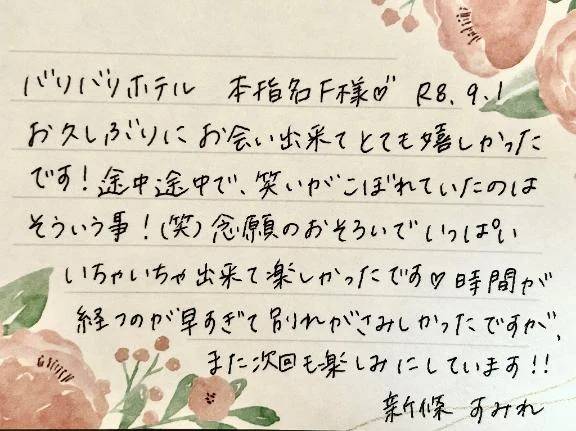 バリバリホテル 本指名F様♡ R8.9.1
お久しぶりにお会い出来てとても嬉しかった
です！途中途中で、笑いがこぼれていたのは
そういう事！(笑)念願のおそろいでいっぱい
いちゃいちゃ出来て楽しかったです♡時間が
経つのが早すぎて別れがさみしかったですが、
また次回も楽しみにしています！！
新條 すみれ